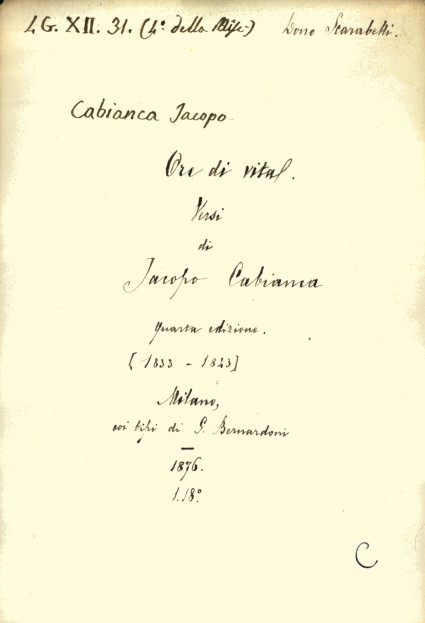 LG. XII. 31. (4º. della Misc.) Dono Scarabelli.
Cabianca Jacopo
Ore di vita.
Versi
di
Jacopo Cabianca
quarta edizione.
[1833 - 1823]
Milano,
coi tipi di G. Bernardoni
1876.
1.18º
C